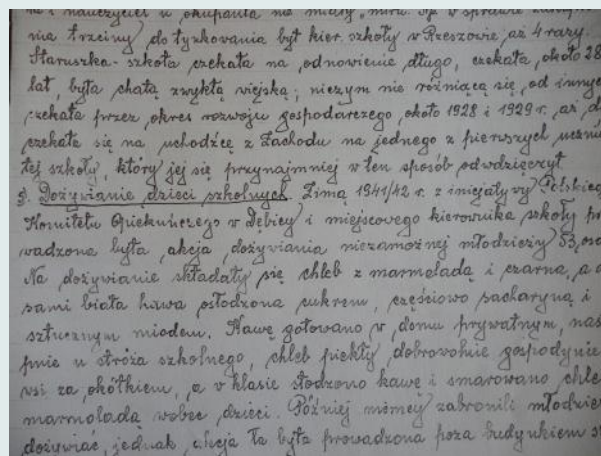 nauczyciel u okupanta na
nia trzciny do tyzkowania był kier. szkoły w Rzeszowie, aż 4 razy.
Staruszka - szkoła czekała na odnowienie długo, czekała około 28
lat, była chatą zwykłą wiejską; niczym nie różniącą się od innych
czekała przez okres rozwoju gospodarczego, około 1928 i 1929 r. aż d
czekała się na uchodźcę z Zachodu na jednego z pierwszych uczni
tej szkoły, który jej się przynajmniej w ten sposób odwdzięczył.
Dożywianie dzieci szkolnych. Zimą 1941/42 r. z inicjatywy Polskiego
Komitetu Opiekuńczego w Dębicy i miejscowego kierownika szkoły pro
wadzona była akcja dożywiania niezamożnej młodzieży 53 osób
Na dożywianie składały się chleb z marmoladą i czarna, a cza
sami biała kawa osłodzona cukrem, częściowo sacharyną i
sztucznym miodem. Kawę gotowano w domu prywatnym, nas
pnie u stróża szkolnego, chleb piekły dobrowolnie gospodynie
wsi za okółkiem, a w klasie słodzono kawę i smarowano chle
marmoladą wobec dzieci. Później niemcy zabronili młodzież
dożywiać, jednak akcja ta była prowadzona poza budynkiem s